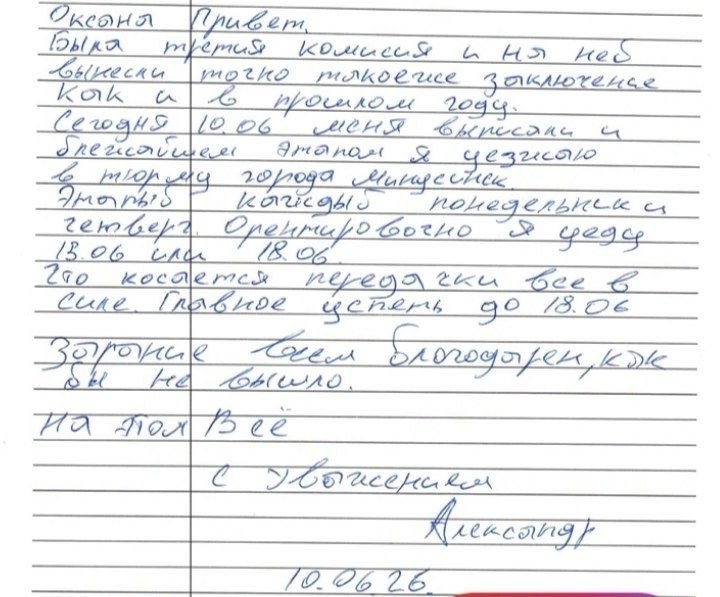 Оксана Привет.
Была третия комисия и на ней
вынесли точно такоеже заключение
как и в прошлом году.
Сегодня 10.06 меня выписали и
ближайшем этапом я уезжаю
в тюрьму города Минусинск.
Этапы каждый понедельник и
четверг. Орентировочно я уеду
13.06 или 18.06.
Что косается передачки все в
силе. Главное успеть до 18.06
Зарание всем благодарен, как
бы не вышло.
на этом Всё
с уважением
Александр
10.06 26.